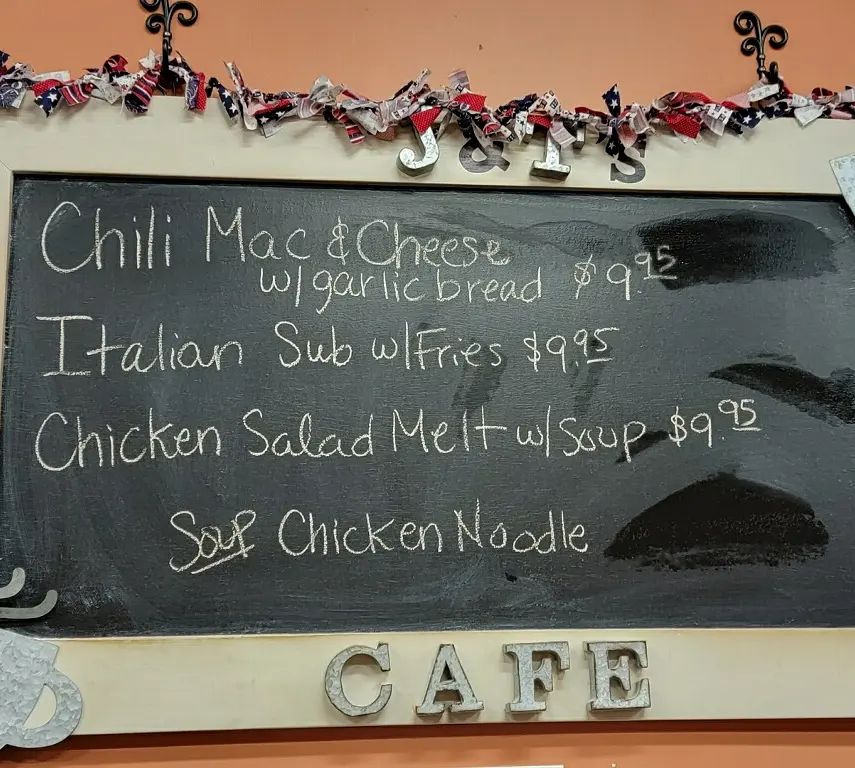 J & T'S
Chili Mac & Cheese
w/garlic bread $9.95
Italian Sub w/Fries $9.95
Chicken Salad Melt w/Soup $9.95
Soup Chicken Noodle
CAFE